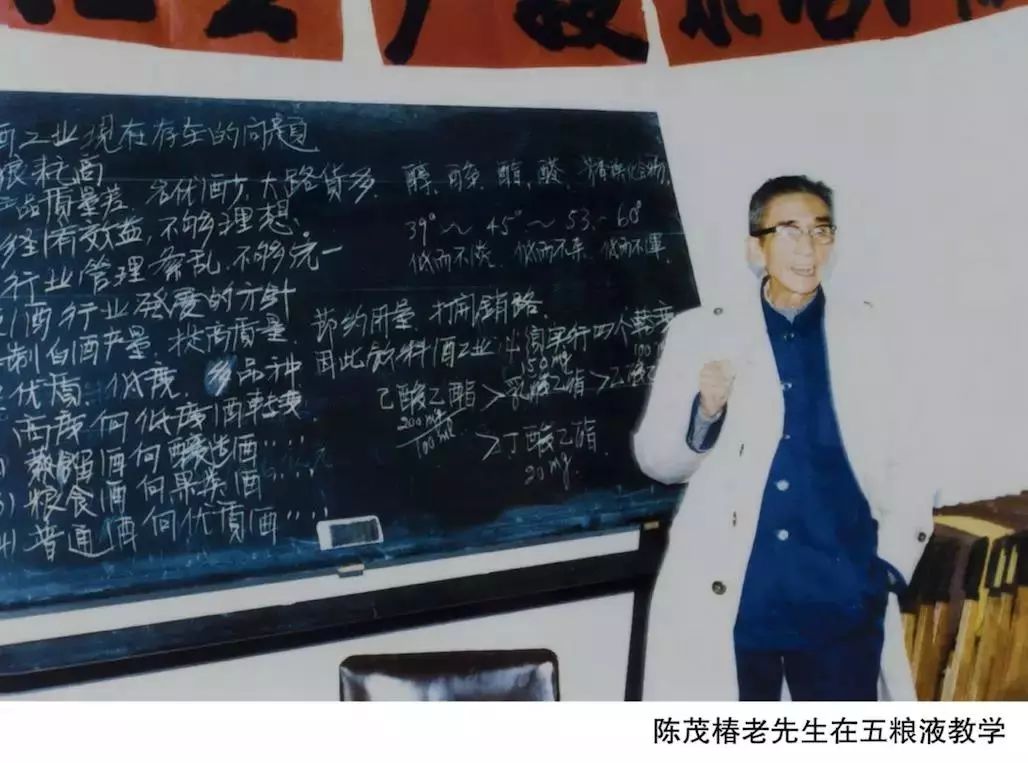 酒工业现在存在的问题
粮耗高
产品质量差 名优酒少,大路货多
经济有效益,不够理想.
行业管理紊乱,不够统一
酒行业发展的方针
制白酒产量,提高质量,节约用量,打开销路.
优质、低度、多品种 因此饮料酒工业必须实行四个转变
高度向低度酒转变.
蒸馏酒向酿造酒〃〃
粮食酒向果类酒〃〃
4) 普通酒向优质酒〃〃
醇、酸、酯、醛、芳香族化合物
39°～45°～53～60°
低而不淡 低而不杂 低而不浑
150mg 100m
己酸乙酯>乳酸乙酯>乙酸乙
200mg
100ml
>丁酸乙酯.
20mg
陈茂椿老先生在五粮液教学